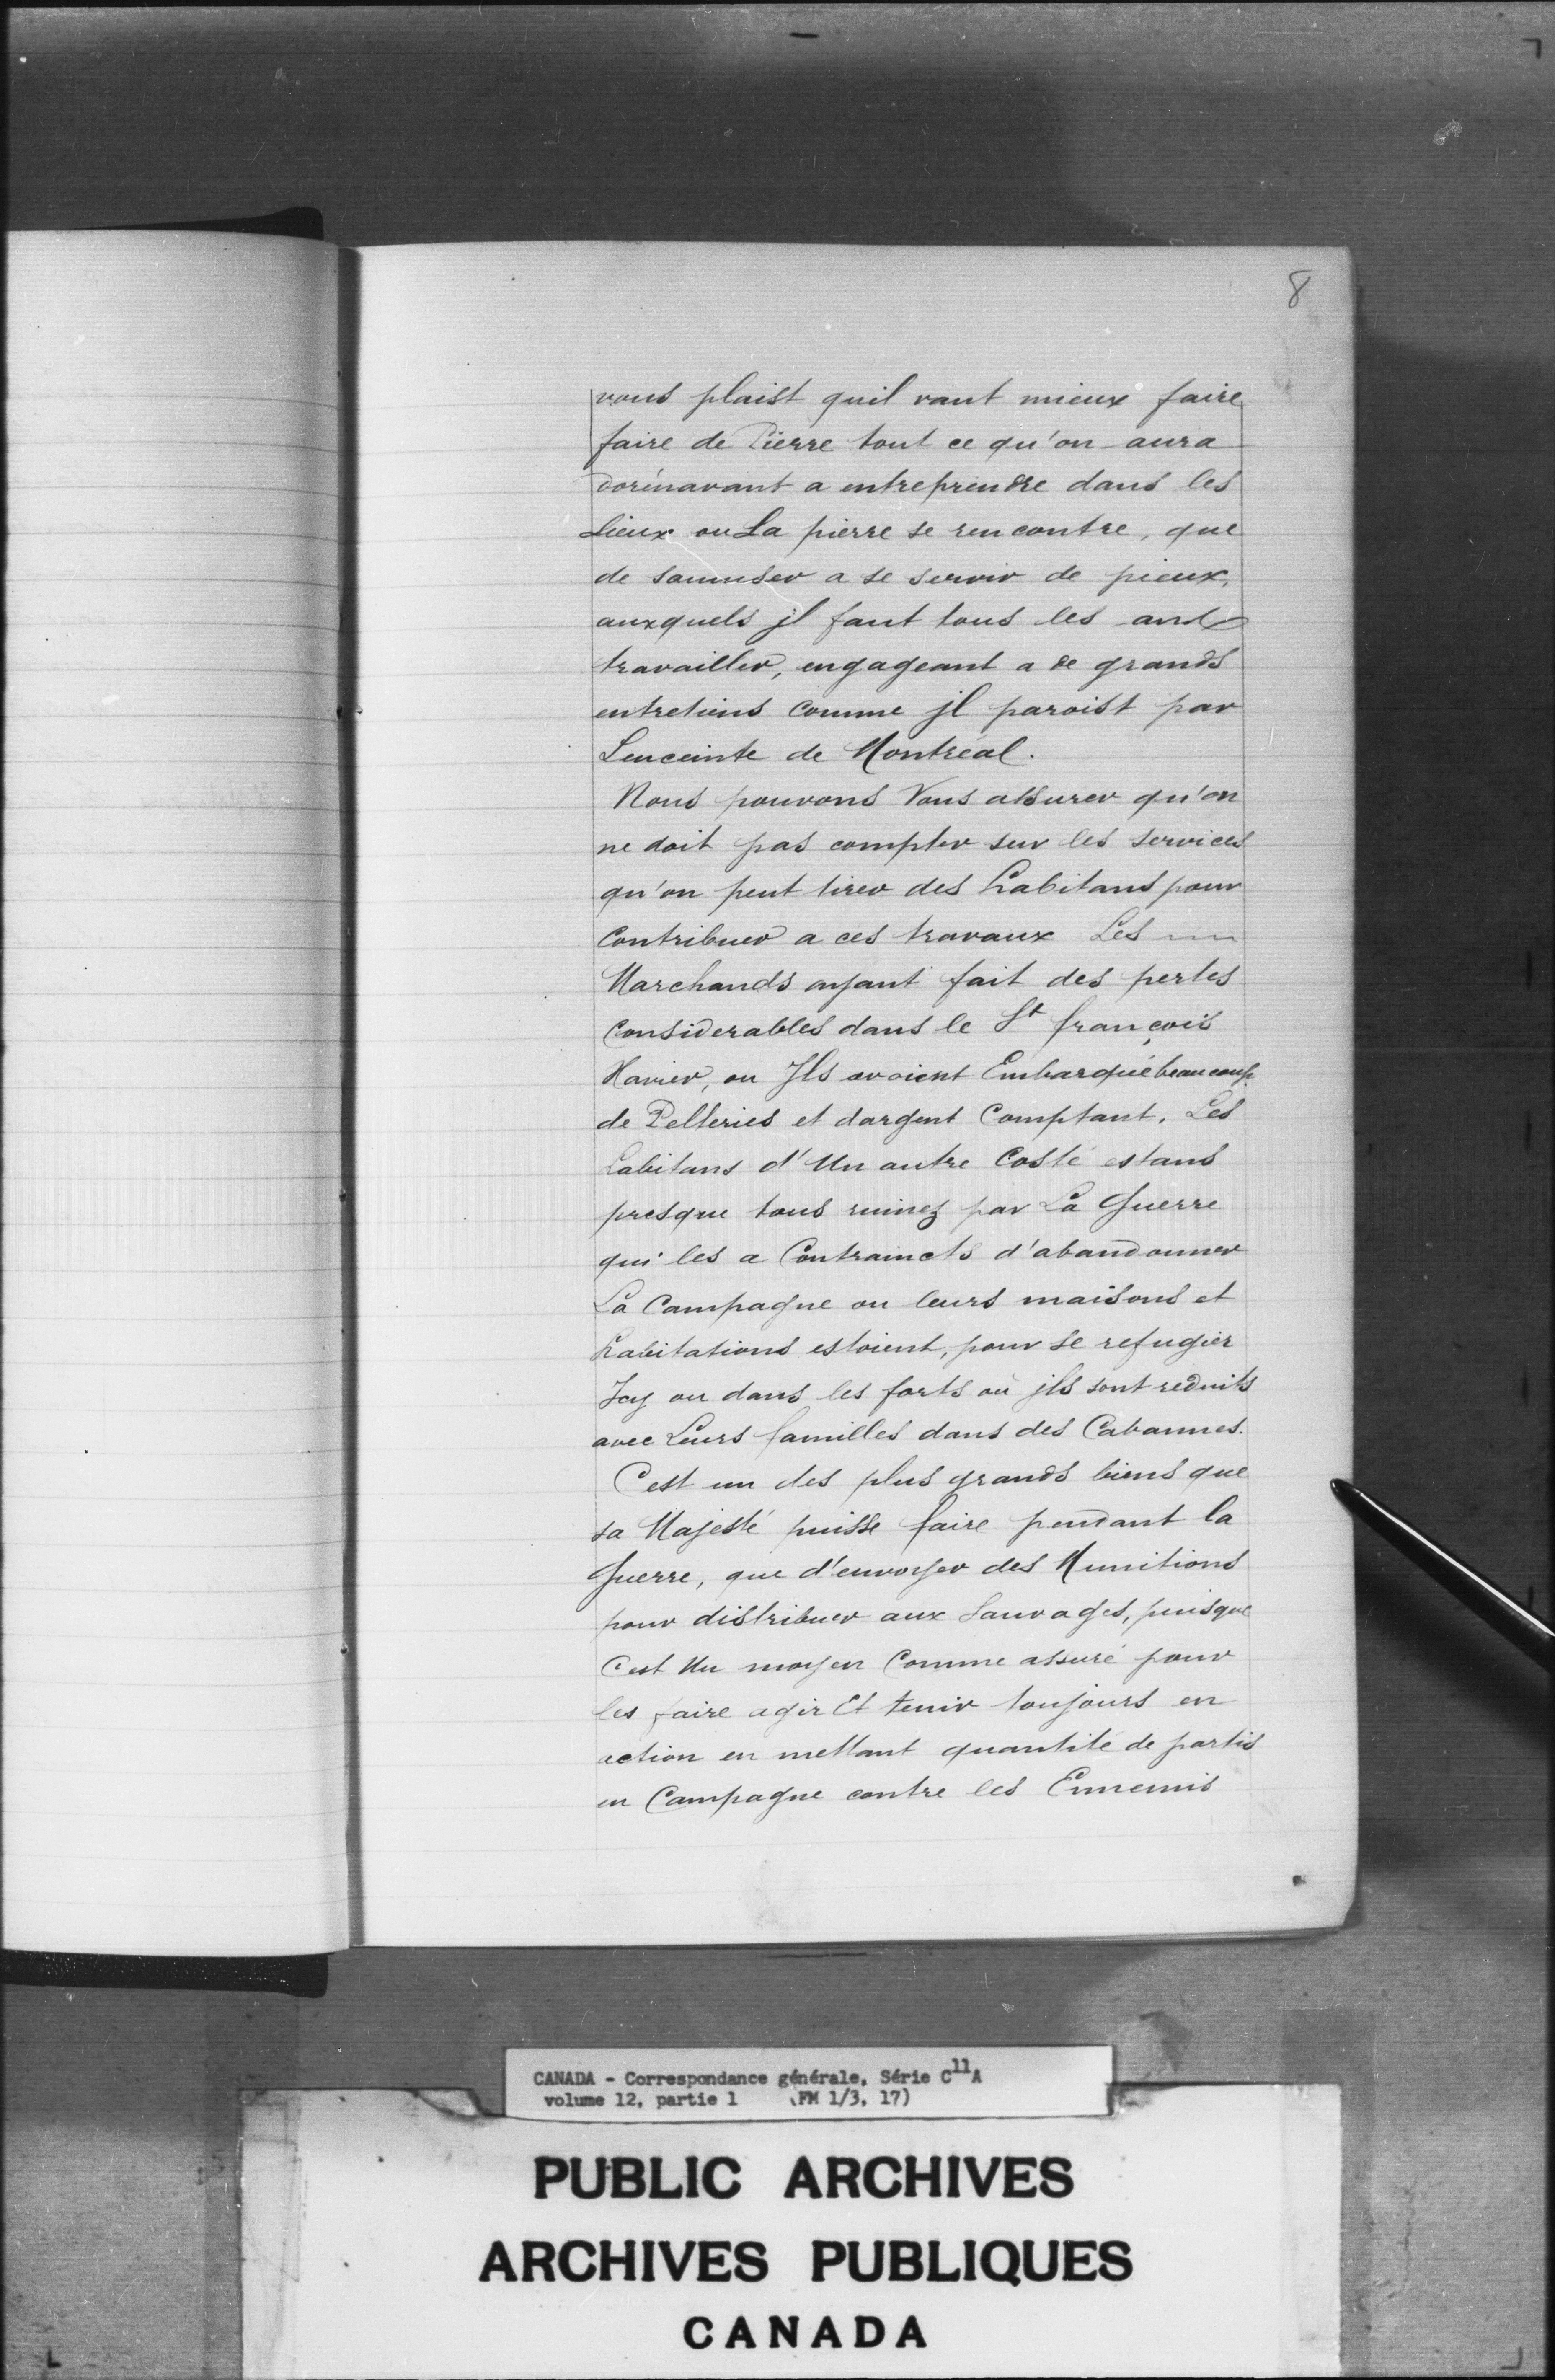 8
vous plaist quil vaut mieux faire
faire de Pierre tout ce qu'on aura
dorénavant a entreprendre dans les
Lieux ou La pierre se rencontre, que
de samuser a se servir de pieux,
auxquels jl faut tous les ans
travailler, engageant a de grands
entretiens comme jl paroist par
Lenceinte de Montréal.
Nous pouvons Vous assurer qu'on
ne doit pas compter sur les services
qu'on peut tirer des habitans pour
Contribuer a ces travaux Les
Marchands ayant fait des pertes
Considerables dans le St françois
Xavier, ou Jls avoient Embarqué beaucoup
de Pelteries et dargent Comptant. Les
habitans d'Un autre Costé estans
presque tous ruinez par La Guerre
qui les a Contraincts d'abandonner
La Campagne ou leurs maisons et
habitations estoient, pour se refugier
Jcy ou dans les forts où jls sont reduits
avec Leurs familles dans des Cabannes.
C'est un des plus grands biens que
sa Majesté puisse faire pendant la
Guerre, que d'envoyer des Munitions
pour distribuer aux Sauvages, puisque
C'est Un moyen Comme assuré pour
les faire agir Et tenir toujours en
action en mettant quantité de partis
en Campagne contre les Ennemis
CANADA - Correspondance générale, Série C11A
volume 12, partie 1 (FM 1/3, 17)
PUBLIC ARCHIVES
ARCHIVES PUBLIQUES
CANADA